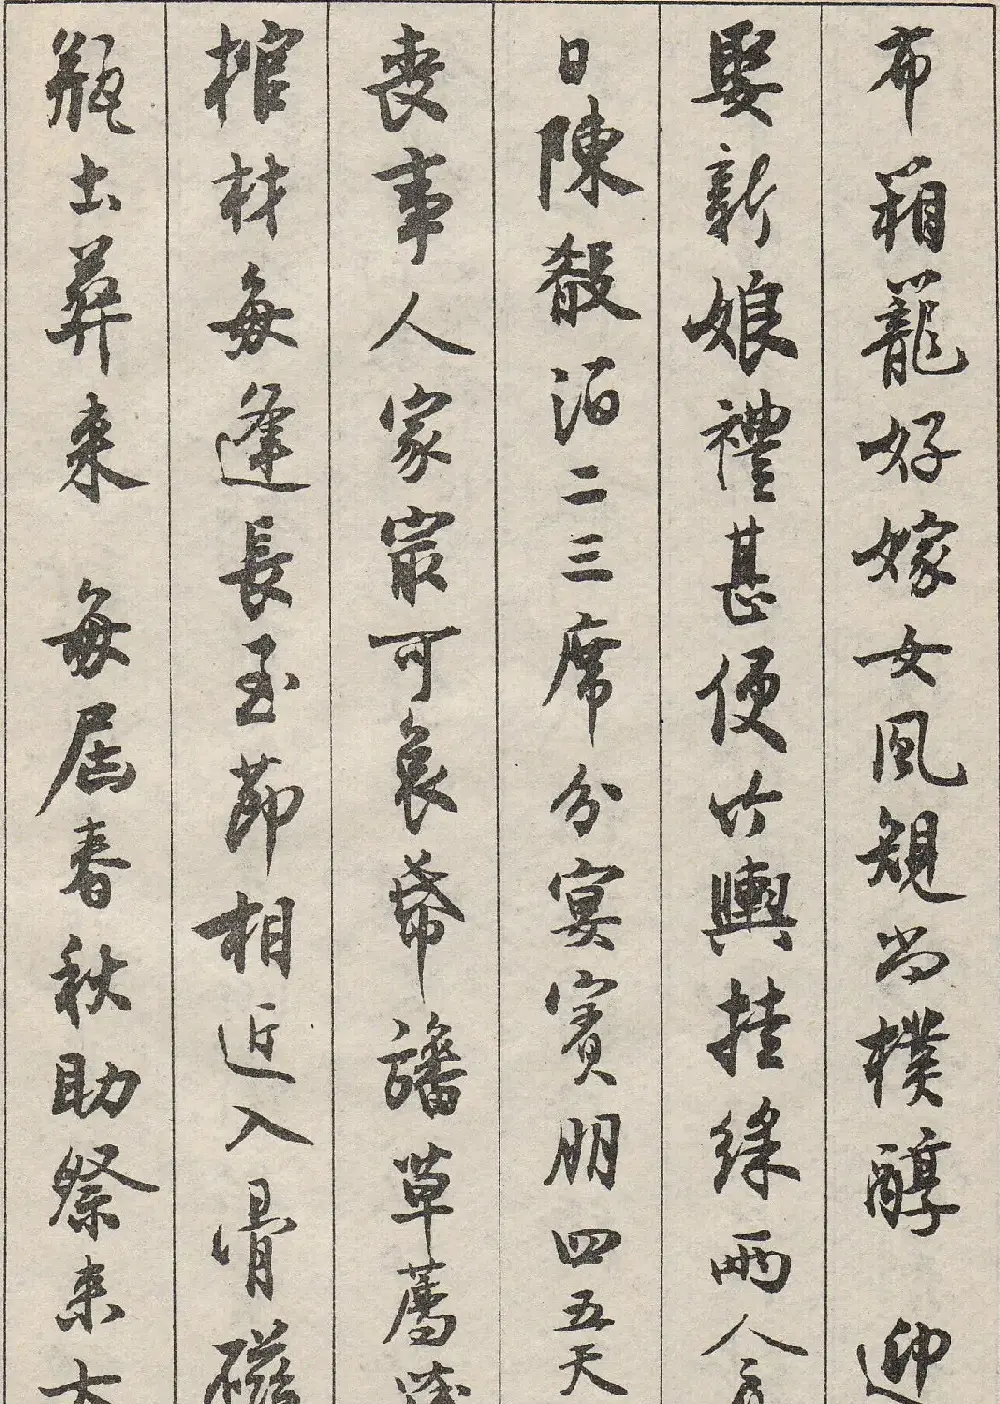 布箱籠好嫁女風規尚樸醇 迎
娶新娘禮甚便竹輿挂綵兩人
日陳殽泊二三席分宴賓朋四五天
喪事人家寂可哀幕旛草薦
棺材每逢長至節相近入骨磁
瓶出葬來 每屆春秋助祭來